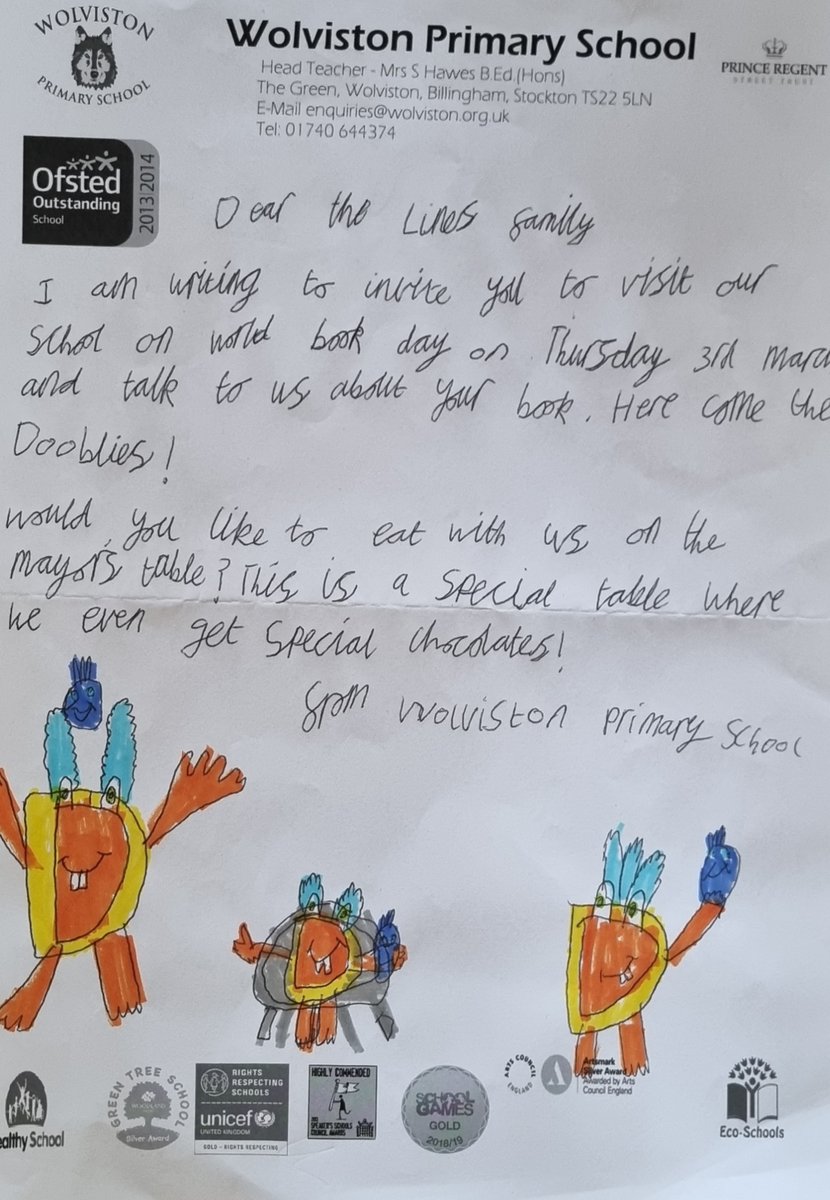 WOLVISTON
PRIMARY SCHOOL
Wolviston Primary School
Head Teacher - Mrs S Hawes B.Ed.(Hons)
The Green, Wolviston, Billingham, Stockton TS22 5LN
E-Mail enquiries@wolviston.org.uk
Tel: 01740 644374
PRINCE REGENT
STREET TRUST
Ofsted
Outstanding
School
2013|2014
Dear the Lines family
I am writing to invite you to visit our
School on world book day on Thursday 3rd marc
and talk to us about your book. Here come the
Dooblies!
would you like to eat with us on the
mayor's table? This is a special table where
we even get special chocolates!
from Wolviston primary school
ealthy School
GREEN TREE SCHOOL
WOODLAND
Silver Award
RIGHTS
RESPECTING
SCHOOLS
unicef
UNITED KINGDOM
GOLD - RIGHTS RESPECTING
HIGHLY COMMENDED
SPEAKER'S SCHOOLS
COUNCIL AWARDS
SCHOOL
GAMES
GOLD
2018/19
ARTS COUNCIL
ENGLAND
Artsmark
Silver Award
Awarded by Arts
Council England
Eco-Schools